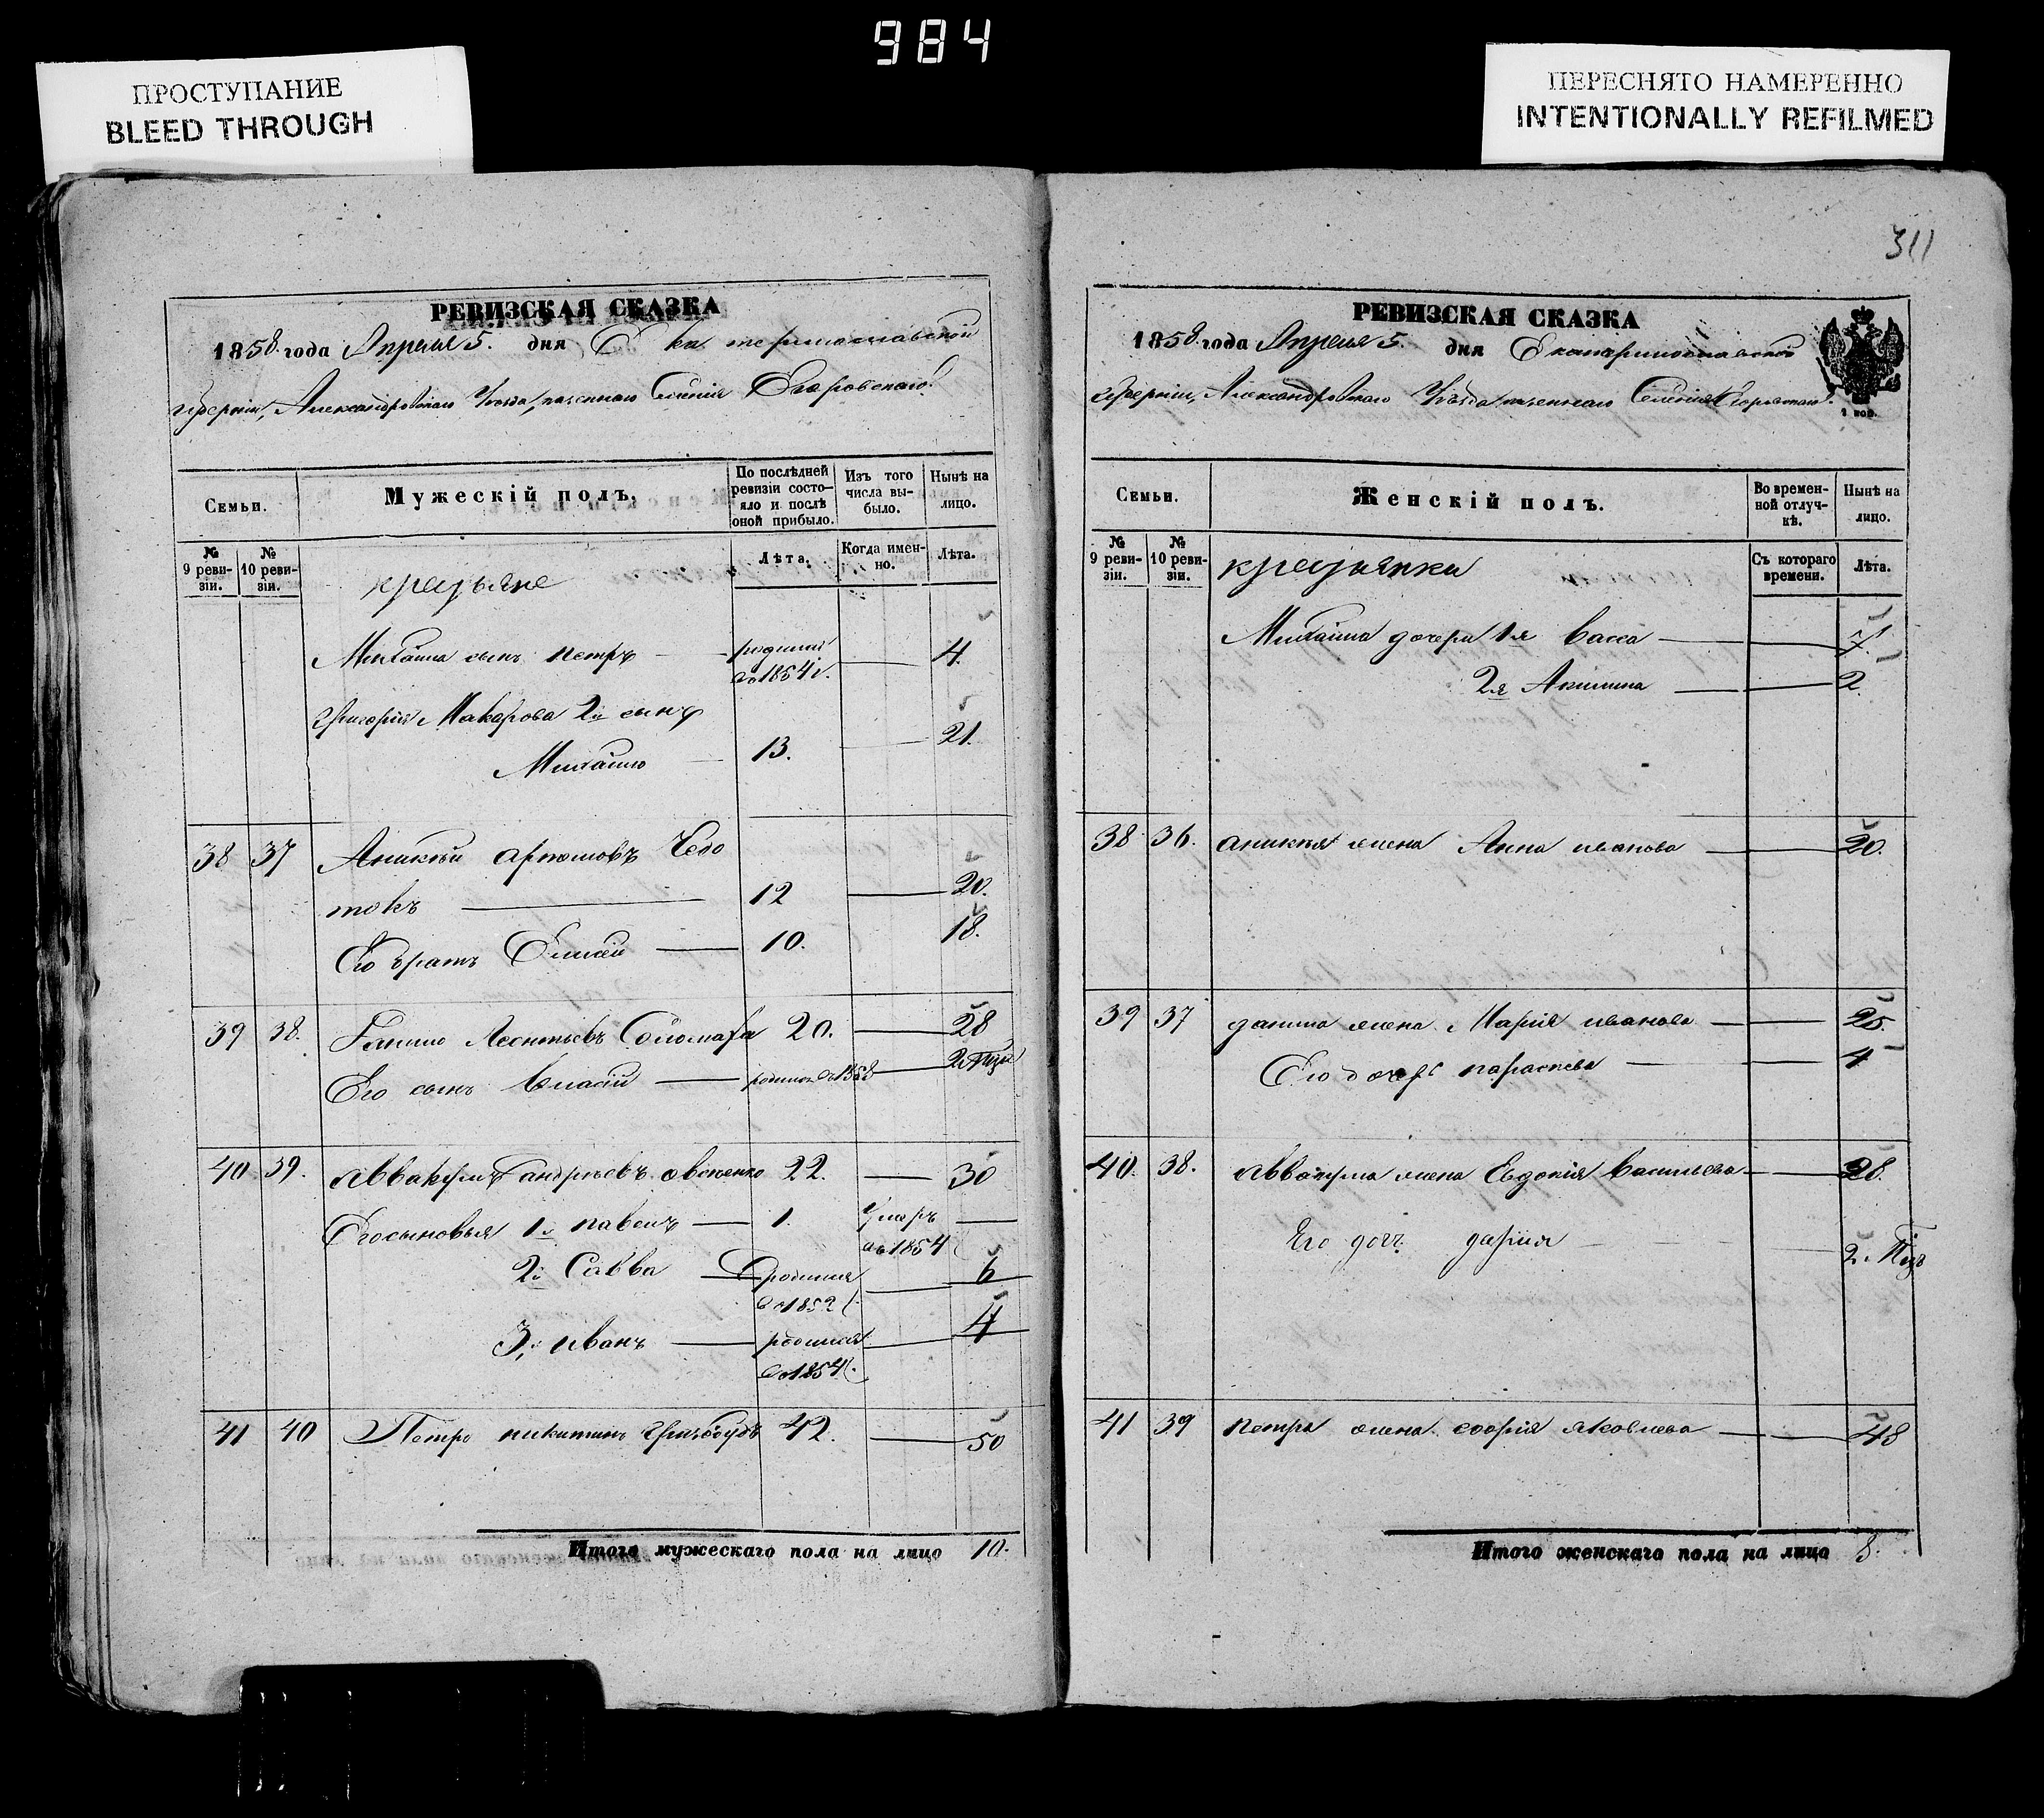 984
ПРОСТУПАНИЕ
BLEED THROUGH
ПЕРЕСНЯТО НАМЕРЕННО
INTENTIONALLY REFILMED
РЕВИЗСКАЯ СКАЗКА
1858 года Апреля 5. дня Екатеринославской
губернии, Александровскаго Уезда, казеннаго Селения Егоровскаго.
Семьи.
Мужескій полъ.
По послѣдней ревизіи состо-
яло и послѣ
оной прибыло.
Изъ того
числа вы-
было.
Нынѣ на
лицо.
№
9 реви-
зіи.
№
10 реви-
зіи.
Лѣта.
Когда имен-
но.
Лѣта.
Михайла сынъ петръ
4.
въ 1854 г.
Григорія Макарова 2й сынъ
Михайло 13. 21.
38 37 Аникѣй артомовъ Чебо
токъ 12 20.
Его братъ Елисей 10. 18.
39 38. Данило Леонтьевъ 20. 28
Его сынъ Власій
40 39. Аввакумъ андреевъ овсенко 22. 30
Его сыновья 1й павелъ 1. умеръ
въ 1854
2й Савва родился 6
въ 1852
3й иванъ родился 4
въ 1854
41 40 Петро никитинъ 42. 50
Итого мужескаго пола на лицо 10.
311
РЕВИЗСКАЯ СКАЗКА
1858 года Апреля 5. дня Екатеринославской
губернии, Александровскаго Уезда казеннаго Селения Егоровскаго.
1 коп.
Семьи.
Женскій полъ.
Во времен-
ной отлуч-
кѣ.
Нынѣ на
лицо.
№
9 реви-
зіи.
№
10 реви-
зіи.
Съ котораго
времени.
Лѣта.
Михайла дочери 1я васса 7.
2я Акилина 2
38 36. аникѣя жена Анна иванова 20.
39 37 данила жена Марія иванова 25.
Его дочерь параскева 4
40. 38. Аввакума жена Евдокія васильева 28.
Его доч. дарія 2.
41 39 петра жена софия яковлева 48
Итого женскаго пола на лицо 8.